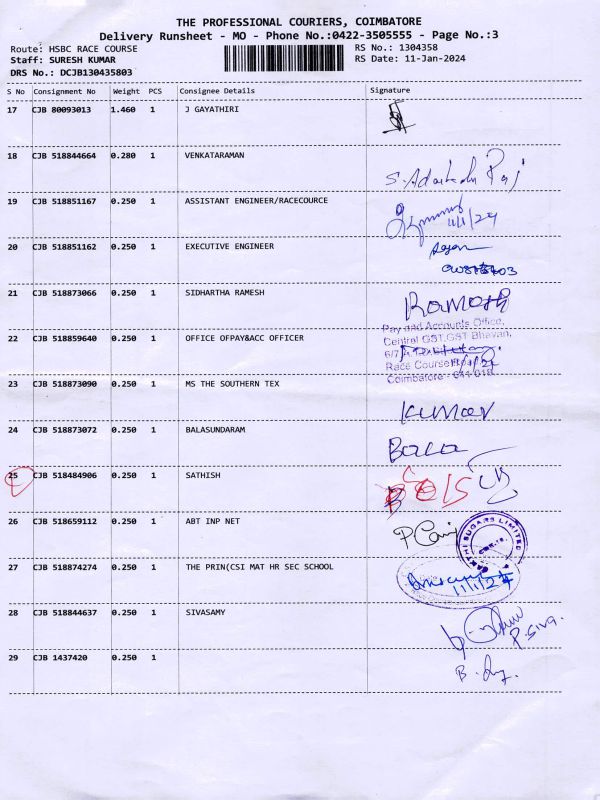 THE PROFESSIONAL COURIERS, COIMBATORE
Delivery Runsheet - MO - Phone No.:0422-3505555 - Page No.:3
Route: HSBC RACE COURSE
RS No.: 1304358
Staff: SURESH KUMAR
RS Date: 11-Jan-2024
DRS No.: DCJB130435803
S No Consignment No Weight PCS Consignee Details Signature
17 CJB 80093013 1.460 1 J GAYATHIRI
18 CJB 518844664 0.280 1 VENKATARAMAN
19 CJB 518851167 0.250 1 ASSISTANT ENGINEER/RACECOURCE
11/1/24
20 CJB 518851162 0.250 1 EXECUTIVE ENGINEER
21 CJB 518873066 0.250 1 SIDHARTHA RAMESH
Ramesh
22 CJB 518859640 0.250 1 OFFICE OFPAY&ACC OFFICER
Pay and Accounts Office,
Central GST,GST Bhavan,
6/7,
Race Course
Coimbatore - 641 018.
23 CJB 518873090 0.250 1 MS THE SOUTHERN TEX
Kumar
24 CJB 518873072 0.250 1 BALASUNDARAM
Bala
25 CJB 518484906 0.250 1 SATHISH
26 CJB 518659112 0.250 1 ABT INP NET
SAKTHI SUGARS LIMITED
27 CJB 518874274 0.250 1 THE PRIN(CSI MAT HR SEC SCHOOL
11/1/24
28 CJB 518844637 0.250 1 SIVASAMY
P. Siva.
29 CJB 1437420 0.250 1